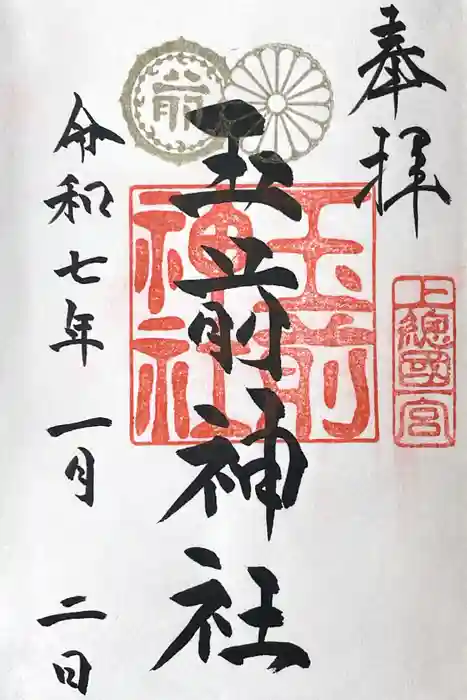 奉拝
上總國一宮
前
玉前神社
玉前神社
令和七年 一月 二日